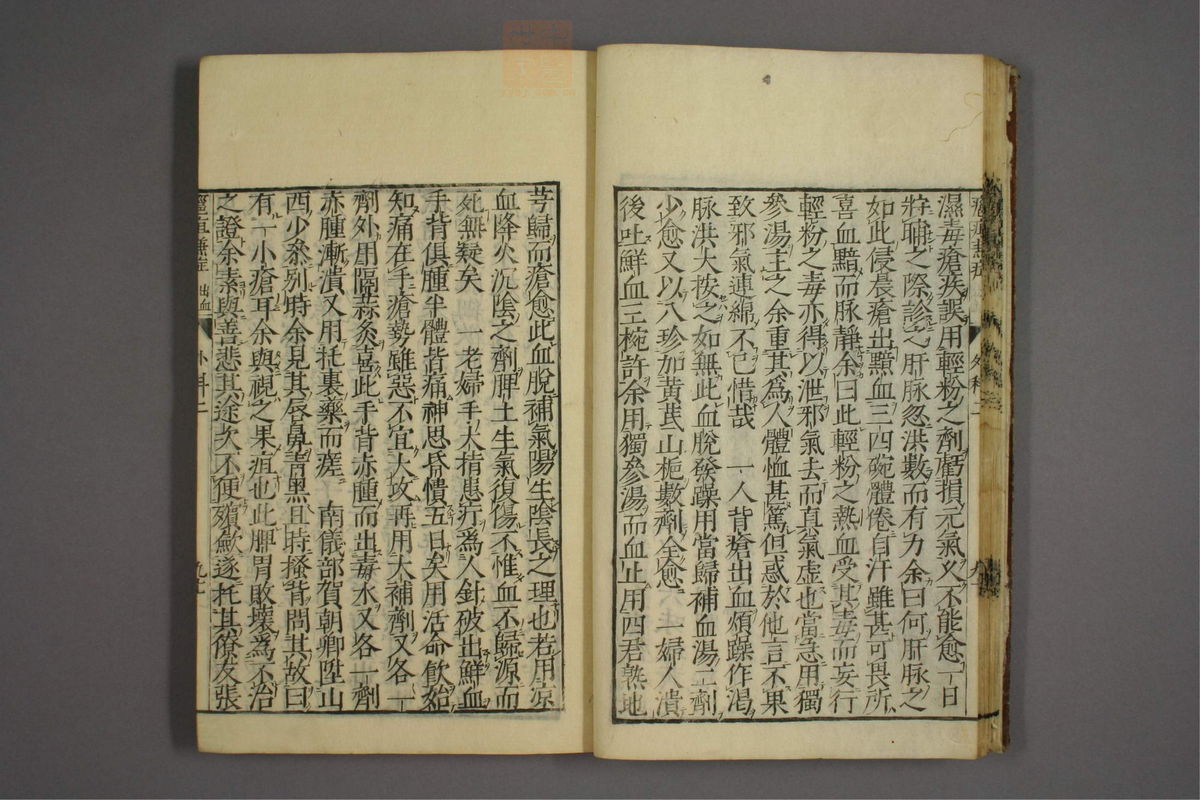 濕毒瘡疾誤用輕粉之劑虧損元氣久不能愈一日
將晡之際診之肝脉忽洪數而有力余曰何肝脉之
如此侵晨瘡出黯血三四碗體倦自汗雖甚可畏所
喜血黯而脉靜余曰此輕粉之熱血受其毒而妄行
輕粉之毒亦得以泄邪氣去而真氣虛也當急用獨
參湯主之余重其爲人體恤甚篤但惑於他言不果
致邪氣連綿不已惜哉 一人背瘡出血煩躁作渴
脉洪大按之如無此血脫發躁用當歸補血湯二劑
少愈又以八珍加黃芪山梔數劑全愈 一婦人潰
後吐鮮血三椀許余用獨參湯而血止用四君熟地
芎歸而瘡愈此血脫補氣陽生隂長之理也若用凉
血降火沉隂之劑脾土生氣復傷不惟血不歸源而
死無疑矣 一老婦手大指患疔爲人針破出鮮血
手背俱腫半體皆痛神思昏憒五日矣用活命飲始
知痛在手瘡勢雖惡不宜大攻再用大補劑又各一
劑外用隔蒜灸喜此手背赤腫而出毒水又各一劑
赤腫漸潰又用托裏藥而瘥 南儀部賀朝卿陞山
西少參别時余見其唇鼻青黑且時搔背問其故曰
有一小瘡耳余與視之果疽也此脾胃敗壞爲不治
之證余素與善悲其途次不便殯歛遂托其僚友張
外科二
出血
外科二